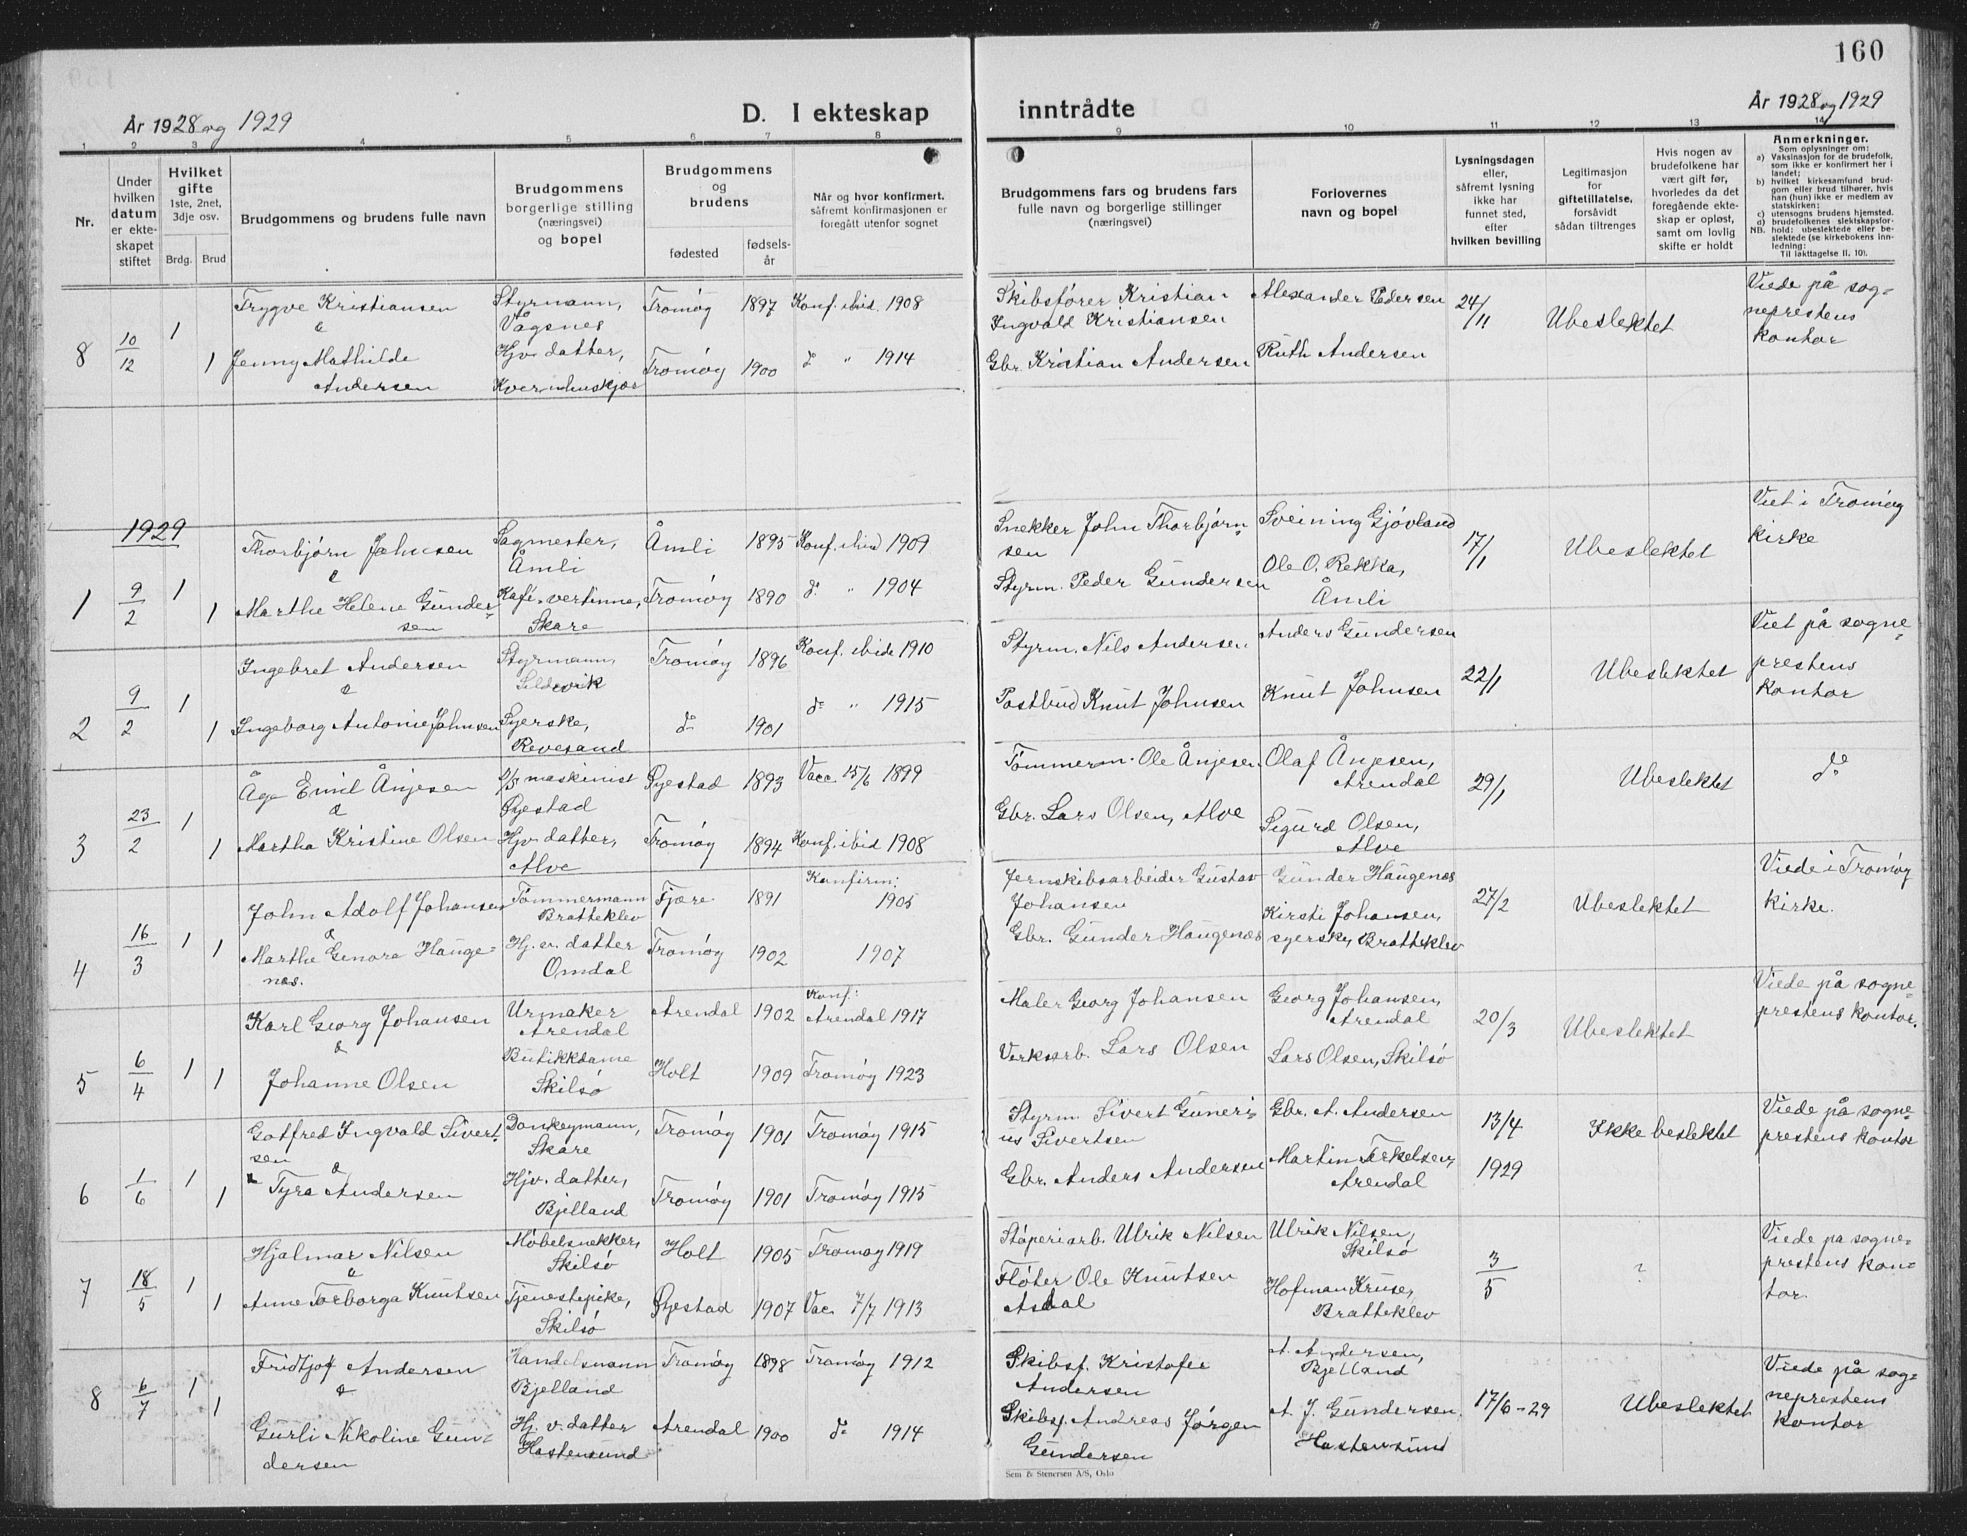 160
År 1928 og 1929
D. I ekteskap inntrådte
År 1928 og 1929
1 2 3 4 5 6 7 8 9 10 11 12 13 14
Nr.
Under hvilken datum er ekteskapet stiftet
Hvilket gifte 1ste, 2net, 3dje osv.
Brdg. Brud
Brudgommens og brudens fulle navn
Brudgommens borgerlige stilling (næringsvei) og bopel
Brudgommens og brudens
fødested
fødsels-år
Når og hvor konfirmert. såfremt konfirmasjonen er foregått utenfor sognet
Brudgommens fars og brudens fars fulle navn og borgerlige stillinger (næringsvei)
Forlovernes navn og bopel
Lysningsdagen eller, såfremt lysning ikke har funnet sted, efter hvilken bevilling
Legitimasjon for giftetillatelse, forsåvidt sådan tiltrenges
Hvis nogen av brudefolkene har vært gift før, hvorledes da det foregående ekteskap er opløst, samt om lovlig skifte er holdt
Anmerkninger.
Som oplysninger om:
a) Vaksinasjon for de brudefolk, som ikke er konfirmert her i landet;
b) hvilket kirkesamfund brudgom eller brud tilhører, hvis han (hun) ikke er medlem av statskirken;
c) utensogns brudens hjemsted.
d) brudefolkenes slektskapsforhold: ubeslektede eller beslektede (se kirkebokens innledning:
NB.
Til iakttagelse II, 10).
8 10/12 1 Trygve Kristiansen Styrmann, Vågsnes Tromøy 1897 Konf. ibid. 1908 Skibsfører Kristian Ingvald Kristiansen Alexander Pedersen 24/11 Ubeslektet Viede på sogneprestens kontor
&
1 Jenny Mathilde Andersen Hjv. datter, Kvernhuskjær Tromøy 1900 do " 1914 Gbr. Kristian Andersen Ruth Andersen
1929
1 9/2 1 Thorbjørn Johnsen Sagmester, Åmli Åmli 1895 Konf. ibid 1909 Snekker John Thorbjørnsen Sveining Gjøvland 17/1 Ubeslektet Viet i Tromøy kirke
&
1 Marthe Helene Gundersen Kafé-vertinne, Skare Tromøy 1890 do " 1904 Styrm. Peder Gundersen Ole O. Rekka, Åmli
2 9/2 1 Ingebret Andersen Styrmann, Tromøy 1896 Konf. ibide 1910 Styrm. Nils Andersen Anders Gundersen 22/1 Ubeslektet Viet på sogneprestens kontor
&
1 Ingeborg Antonie Johnsen Syerske, Revesand do 1901 do " 1915 Postbud Knut Johnsen Knut Johnsen
3 23/2 1 Åge Emil Ånjesen D/S maskinist Øyestad Øyestad 1893 Vacc. 15/6 1899 Tømmerm. Ole Ånjesen Olaf Ånjesen, Arendal 29/1 Ubeslektet do
&
1 Martha Kristine Olsen Hjv. datter, Alve Tromøy 1894 Konf. ibid 1908 Gbr. Lars Olsen, Alve Sigurd Olsen, Alve
4 16/3 1 John Adolf Johansen Tømmermann Bratteklev Fjære 1891 Konfirm: 1905 Jernskibsarbeider Gustav Johansen Gunder Haugenes 27/2 Ubeslektet Viede i Tromøy kirke.
&
1 Marthe Genora Haugenes. Hj. v. datter Omdal Tromøy 1902 1907 Gbr. Gunder Haugenes Kirsti Johansen, syerske, Bratteklev
5 6/4 1 Karl Georg Johansen Urmaker Arendal Arendal 1902 Konf: Arendal 1917 Maler Georg Johansen Georg Johansen, Arendal 20/3 Ubeslektet Viede på sogneprestens kontor.
&
1 Johanne Olsen Butikkdame Skilsø Holt 1909 Tromøy 1923 Verksarb. Lars Olsen Lars Olsen, Skilsø
6 1/6 1 Gotfred Ingvald Sivertsen Donkeymann, Skare Tromøy 1901 Tromøy 1915 Styrm. Sivert Gunerius Sivertsen Gbr. A. Andersen 13/4 1929 Ikke beslektet Viede på sogneprestens kontor
&
1 Tyra Andersen Hjv. datter, Bjelland Tromøy 1901 Tromøy 1915 Gbr. Anders Andersen Martin Terkelsen, Arendal
7 18/5 1 Hjalmar Nilsen Møbelsnekker, Skilsø Holt 1905 Tromøy 1919 Støperiarb. Ulrik Nilsen Ulrik Nilsen, Skilsø 3/5 ? Viede på sogneprestens kontor
&
1 Anne Torborga Knutsen Tjenestepike, Skilsø Øyestad 1907 Vac. 7/7 1913 Fløter Ole Knutsen Asdal Hofman Kruse, Bratteklev
8 6/7 1 Fridtjof Andersen Handelsmann Bjelland Tromøy 1898 Tromøy 1912 Skibsf. Kristofer Andersen A. Andersen, Bjelland 17/6-29 Ubeslektet Viede på sogneprestens kontor
&
1 Gurli Nikoline Gundersen Hj. v. datter Hastensund Arendal 1900 do 1914 Skibsf. Andreas Jørgen Gundersen A. J. Gundersen, Hastensund
Sem & Stenersen A/S, Oslo